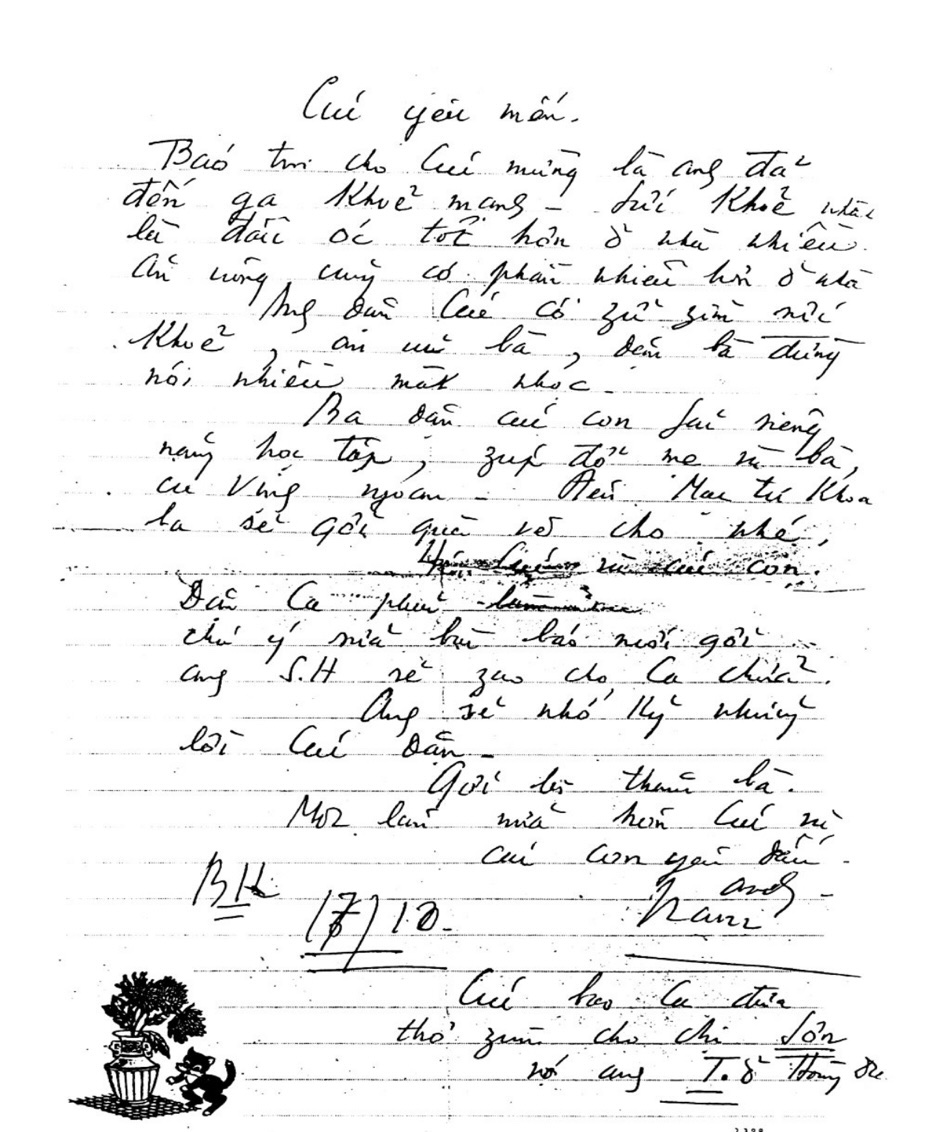 Cúc yêu mến.
Báo tin cho Cúc mừng là ang đã
đến ga khoẻ mạng - sức khoẻ
là đầu óc tốt hơn ở nhà nhiều.
ăn uống cũng có phần nhiều hơn ở nhà
Ang dặn Cúc cố zữ zìn sức
khoẻ, bà, dặn bà đừng
nói nhiều mất nhọc -
Ba dặn cúc con siêng
năng học tập, zúp đỡ mẹ và bà,
ngoan - Đến Mac tư Khoa
ba sẽ gởi quà về cho nhé,
cúc con.
Dặn Ca phải
chú ý nữa bài báo mới gởi
ang S.H sẽ zao cho Ca chữa.
Ang sẽ nhớ kỹ những
lời Cúc dặn -
Gởi lời thăm bà.
Một lần nữa hôn Cúc và
cúc con yêu dấu.
ang -
BK
Nam
17/10-
Cúc bảo Ca đưa
thơ zùm cho chị Sơn
ang T. ở